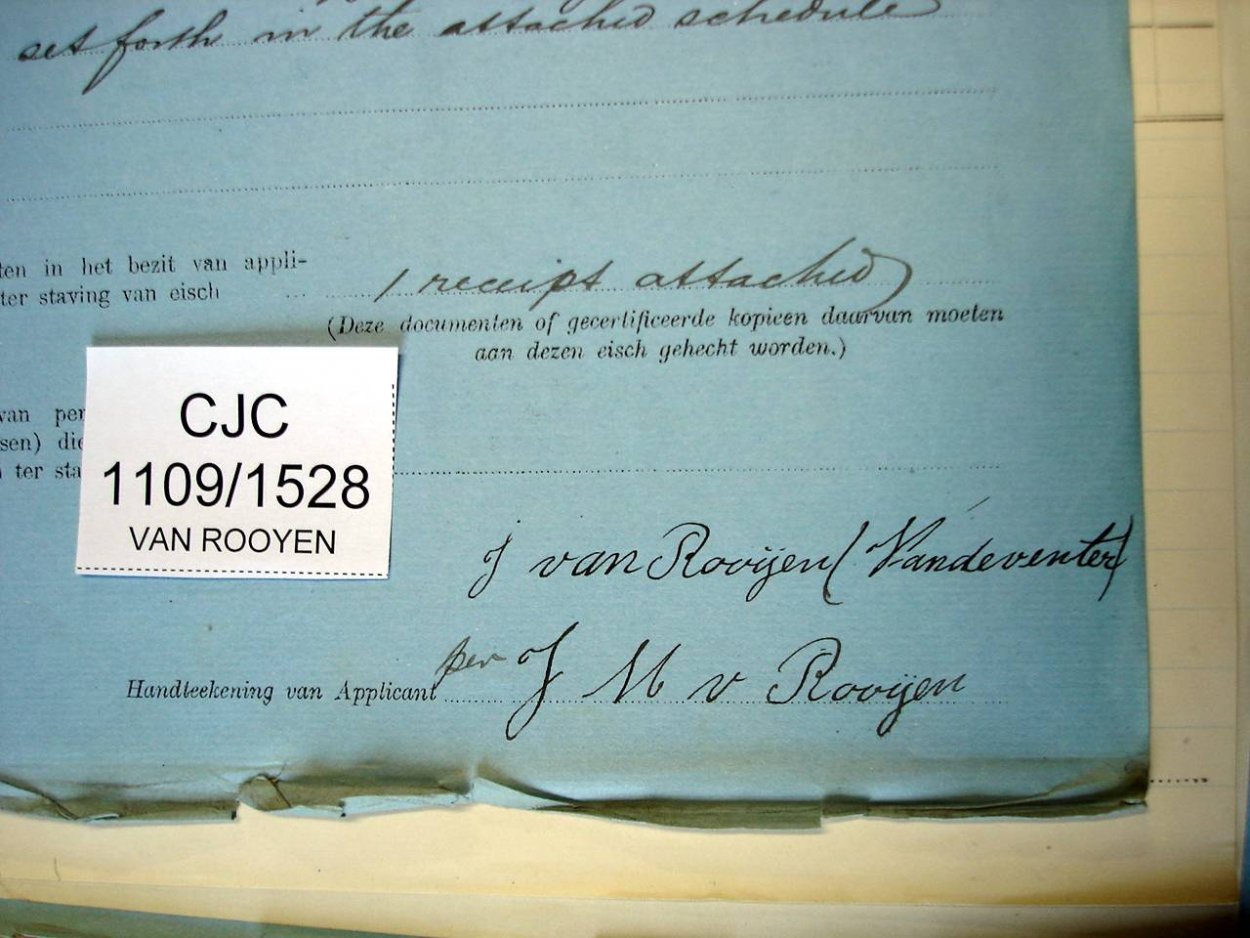 set forth in the attached schedule
ten in het bezit van appli-
ter staving van eisch ... 1 receipt attached
(Deze documenten of gecertificeerde kopieen daarvan moeten
aan dezen eisch gehecht worden.)
van per
sen) die
ter sta
CJC
1109/1528
VAN ROOYEN
J van Rooijen (Vandeventer)
per J M v Rooijen
Handteekening van Applicant